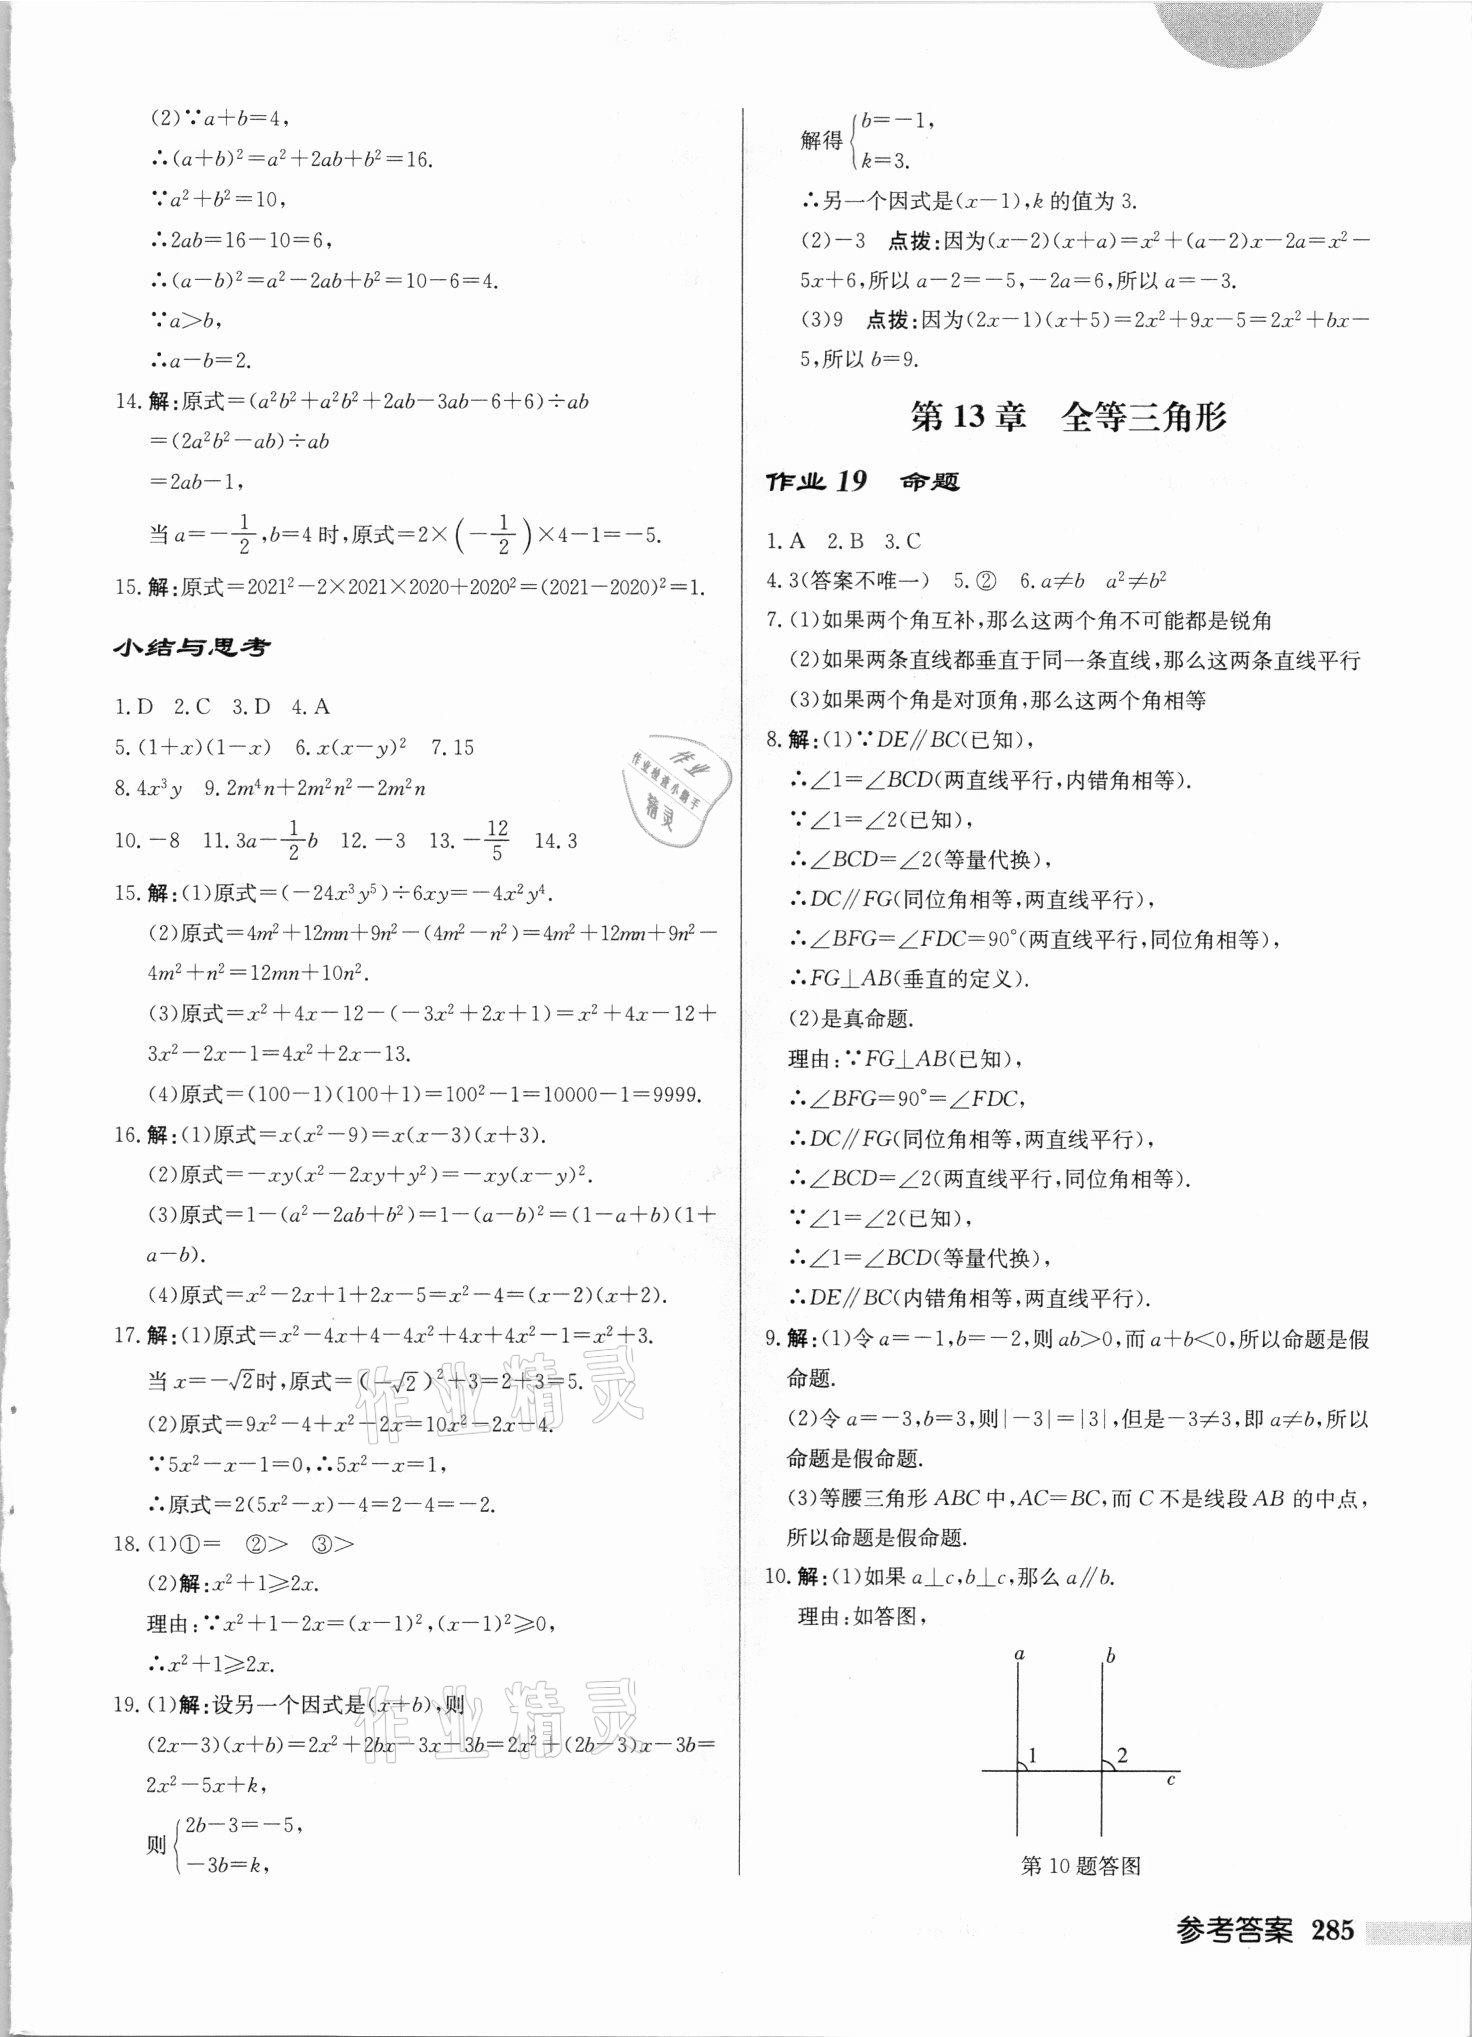 (2)∵a+b=4,
∴(a+b)²=a²+2ab+b²=16.
∵a²+b²=10,
∴2ab=16-10=6,
∴(a-b)²=a²-2ab+b²=10-6=4.
∵a>b,
∴a-b=2.
14. 解:原式=(a²b²+a²b²+2ab-3ab-6+6)÷ab
=(2a²b²-ab)÷ab
=2ab-1,
当 a=-1/2,b=4 时,原式=2×(-1/2)×4-1=-5.
15. 解:原式=2021²-2×2021×2020+2020²=(2021-2020)²=1.
小结与思考
1. D 2. C 3. D 4. A
5. (1+x)(1-x) 6. x(x-y)² 7. 15
8. 4x³y 9. 2m⁴n+2m²n²-2m²n
10. -8 11. 3a-1/2b 12. -3 13. -12/5 14. 3
15. 解:(1)原式=(-24x³y⁵)÷6xy=-4x²y⁴.
(2)原式=4m²+12mn+9n²-(4m²-n²)=4m²+12mn+9n²-
4m²+n²=12mn+10n².
(3)原式=x²+4x-12-(-3x²+2x+1)=x²+4x-12+
3x²-2x-1=4x²+2x-13.
(4)原式=(100-1)(100+1)=100²-1=10000-1=9999.
16. 解:(1)原式=x(x²-9)=x(x-3)(x+3).
(2)原式=-xy(x²-2xy+y²)=-xy(x-y)².
(3)原式=1-(a²-2ab+b²)=1-(a-b)²=(1-a+b)(1+
a-b).
(4)原式=x²-2x+1+2x-5=x²-4=(x-2)(x+2).
17. 解:(1)原式=x²-4x+4-4x²+4x+4x²-1=x²+3.
当 x=-√2时,原式=(-√2)²+3=2+3=5.
(2)原式=9x²-4+x²-2x=10x²-2x-4.
∵5x²-x-1=0,∴5x²-x=1,
∴原式=2(5x²-x)-4=2-4=-2.
18. (1)①= ②> ③>
(2)解:x²+1⩾2x.
理由:∵x²+1-2x=(x-1)²,(x-1)²⩾0,
∴x²+1⩾2x.
19. (1)解:设另一个因式是(x+b),则
(2x-3)(x+b)=2x²+2bx-3x-3b=2x²+(2b-3)x-3b=
2x²-5x+k,
则{2b-3=-5,
-3b=k,
解得{b=-1,
k=3.
∴另一个因式是(x-1),k 的值为 3.
(2)-3 点拨:因为(x-2)(x+a)=x²+(a-2)x-2a=x²-
5x+6,所以 a-2=-5,-2a=6,所以 a=-3.
(3)9 点拨:因为(2x-1)(x+5)=2x²+9x-5=2x²+bx-
5,所以 b=9.
第 13 章 全等三角形
作业 19 命题
1. A 2. B 3. C
4. 3(答案不唯一) 5. ② 6. a≠b a²≠b²
7. (1)如果两个角互补,那么这两个角不可能都是锐角
(2)如果两条直线都垂直于同一条直线,那么这两条直线平行
(3)如果两个角是对顶角,那么这两个角相等
8. 解:(1)∵DE∥BC(已知),
∴∠1=∠BCD(两直线平行,内错角相等).
∵∠1=∠2(已知),
∴∠BCD=∠2(等量代换),
∴DC∥FG(同位角相等,两直线平行),
∴∠BFG=∠FDC=90°(两直线平行,同位角相等),
∴FG⊥AB(垂直的定义).
(2)是真命题.
理由:∵FG⊥AB(已知),
∴∠BFG=90°=∠FDC,
∴DC∥FG(同位角相等,两直线平行),
∴∠BCD=∠2(两直线平行,同位角相等).
∵∠1=∠2(已知),
∴∠1=∠BCD(等量代换),
∴DE∥BC(内错角相等,两直线平行).
9. 解:(1)令 a=-1,b=-2,则 ab>0,而 a+b<0,所以命题是假
命题.
(2)令 a=-3,b=3,则|-3|=|3|,但是-3≠3,即 a≠b,所以
命题是假命题.
(3)等腰三角形 ABC 中,AC=BC,而 C 不是线段 AB 的中点,
所以命题是假命题.
10. 解:(1)如果 a⊥c,b⊥c,那么 a∥b.
理由:如答图,
a b
1 2
c
第 10 题答图
参考答案 285
作业
作业检查小助手
精灵
作业精灵
作业精灵